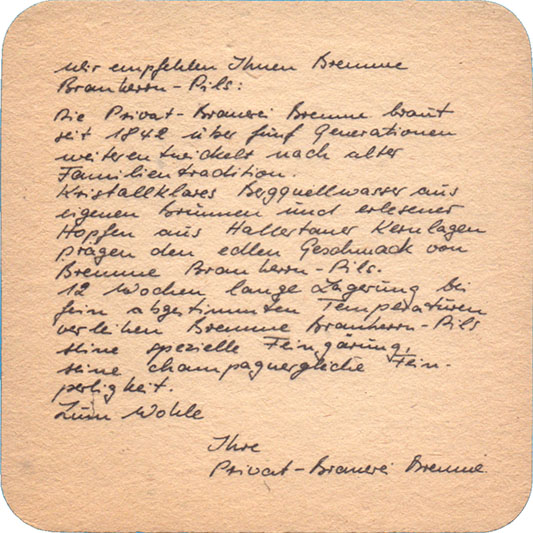 Wir empfehlen Ihnen Bremme
Brauherrn-Pils:
Die Privat-Brauerei Bremme braut
seit 1842 über fünf Generationen
weiterentwickelt nach alter
Familientradition.
Kristallklares Bergquellwasser aus
eigenen Brunnen und erlesener
Hopfen aus Hallertauer Kernlagen
prägen den edlen Geschmack von
Bremme Brauherrn-Pils.
12 Wochen lange Lagerung bei
fein abgestimmten Temperaturen
verleihen Bremme Brauherrn-Pils
seine spezielle Feingärung,
seine champagnergleiche Fein-
perligkeit.
Zum Wohle
Ihre
Privat-Brauerei Bremme